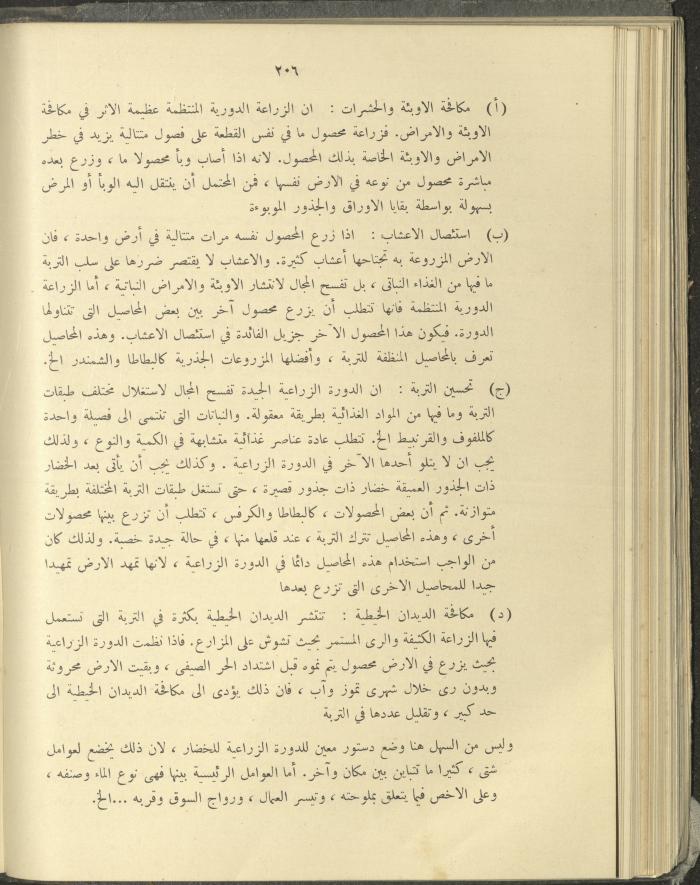 ٢٠٦
(أ) مكافحة الاوبئة والحشرات : ان الزراعة الدورية المنتظمة عظيمة الاثر في مكافحة
الاوبئة والامراض. فزراعة محصول ما في نفس القطعة على فصول متتالية يزيد في خطر
الامراض والاوبئة الخاصة بذلك المحصول. لانه اذا أصاب وبأ محصولا ما ، وزرع بعده
مباشرة محصول من نوعه في الارض نفسها ، فمن المحتمل أن ينتقل اليه الوبأ أو المرض
بسهولة بواسطة بقايا الاوراق والجذور الموبوءة
(ب) استئصال الاعشاب : اذا زرع المحصول نفسه مرات متتالية في أرض واحدة ، فان
الارض المزروعة به تجتاحها أعشاب كثيرة. والاعشاب لا يقتصر ضررها على سلب التربة
ما فيها من الغذاء النباتى ، بل تفسح المجال لانتشار الاوبئة والامراض النباتية ، أما الزراعة
الدورية المنتظمة فانها تتطلب أن يزرع محصول آخر بين بعض المحاصيل التى تتناولها
الدورة. فيكون هذا المحصول الآخر جزيل الفائدة في استئصال الاعشاب. وهذه المحاصيل
تعرف بالمحاصيل المنظفة للتربة ، وأفضلها المزروعات الجذرية كالبطاطا والشمندر الخ.
(ج) تحسين التربة : ان الدورة الزراعية الجيدة تفسح المجال لاستغلال مختلف طبقات
التربة وما فيها من المواد الغذائية بطريقة معقولة. والنباتات التى تنتمى الى فصيلة واحدة
كالملفوف والقرنبيط الخ. تتطلب عادة عناصر غذائية متشابهة في الكمية والنوع ، ولذلك
يجب ان لا يتلو أحدها الآخر في الدورة الزراعية . وكذلك يجب أن يأتى بعد الخضار
ذات الجذور العميقة خضار ذات جذور قصيرة ، حتى تستغل طبقات التربة المختلفة بطريقة
متوازنة. ثم أن بعض المحصولات ، كالبطاطا والكرفس ، تتطلب أن تزرع بينها محصولات
أخرى ، وهذه المحاصيل تترك التربة ، عند قلعها منها ، في حالة جيدة خصبة. ولذلك كان
من الواجب استخدام هذه المحاصيل دائما في الدورة الزراعية ، لانها تمهد الارض تمهيدا
جيدا للمحاصيل الاخرى التى تزرع بعدها
(د) مكافحة الديدان الخيطية : تنتشر الديدان الخيطية بكثرة في التربة التى تستعمل
فيها الزراعة الكثيفة والرى المستمر بحيث تشوش على المزارع. فاذا نظمت الدورة الزراعية
بحيث يزرع في الارض محصول يتم نموه قبل اشتداد الحر الصيفى ، وبقيت الارض محروثة
وبدون رى خلال شهرى تموز وآب ، فان ذلك يؤدى الى مكافحة الديدان الخيطية الى
حد كبير ، وتقليل عددها في التربة
وليس من السهل هنا وضع دستور معين للدورة الزراعية للخضار ، لان ذلك يخضع لعوامل
شتى ، كثيرا ما تتباين بين مكان وآخر. أما العوامل الرئيسية بينها فهى نوع الماء وصنفه ،
وعلى الاخص فيما يتعلق بملوحته ، وتيسر العمال ، ورواج السوق وقربه ...الخ.